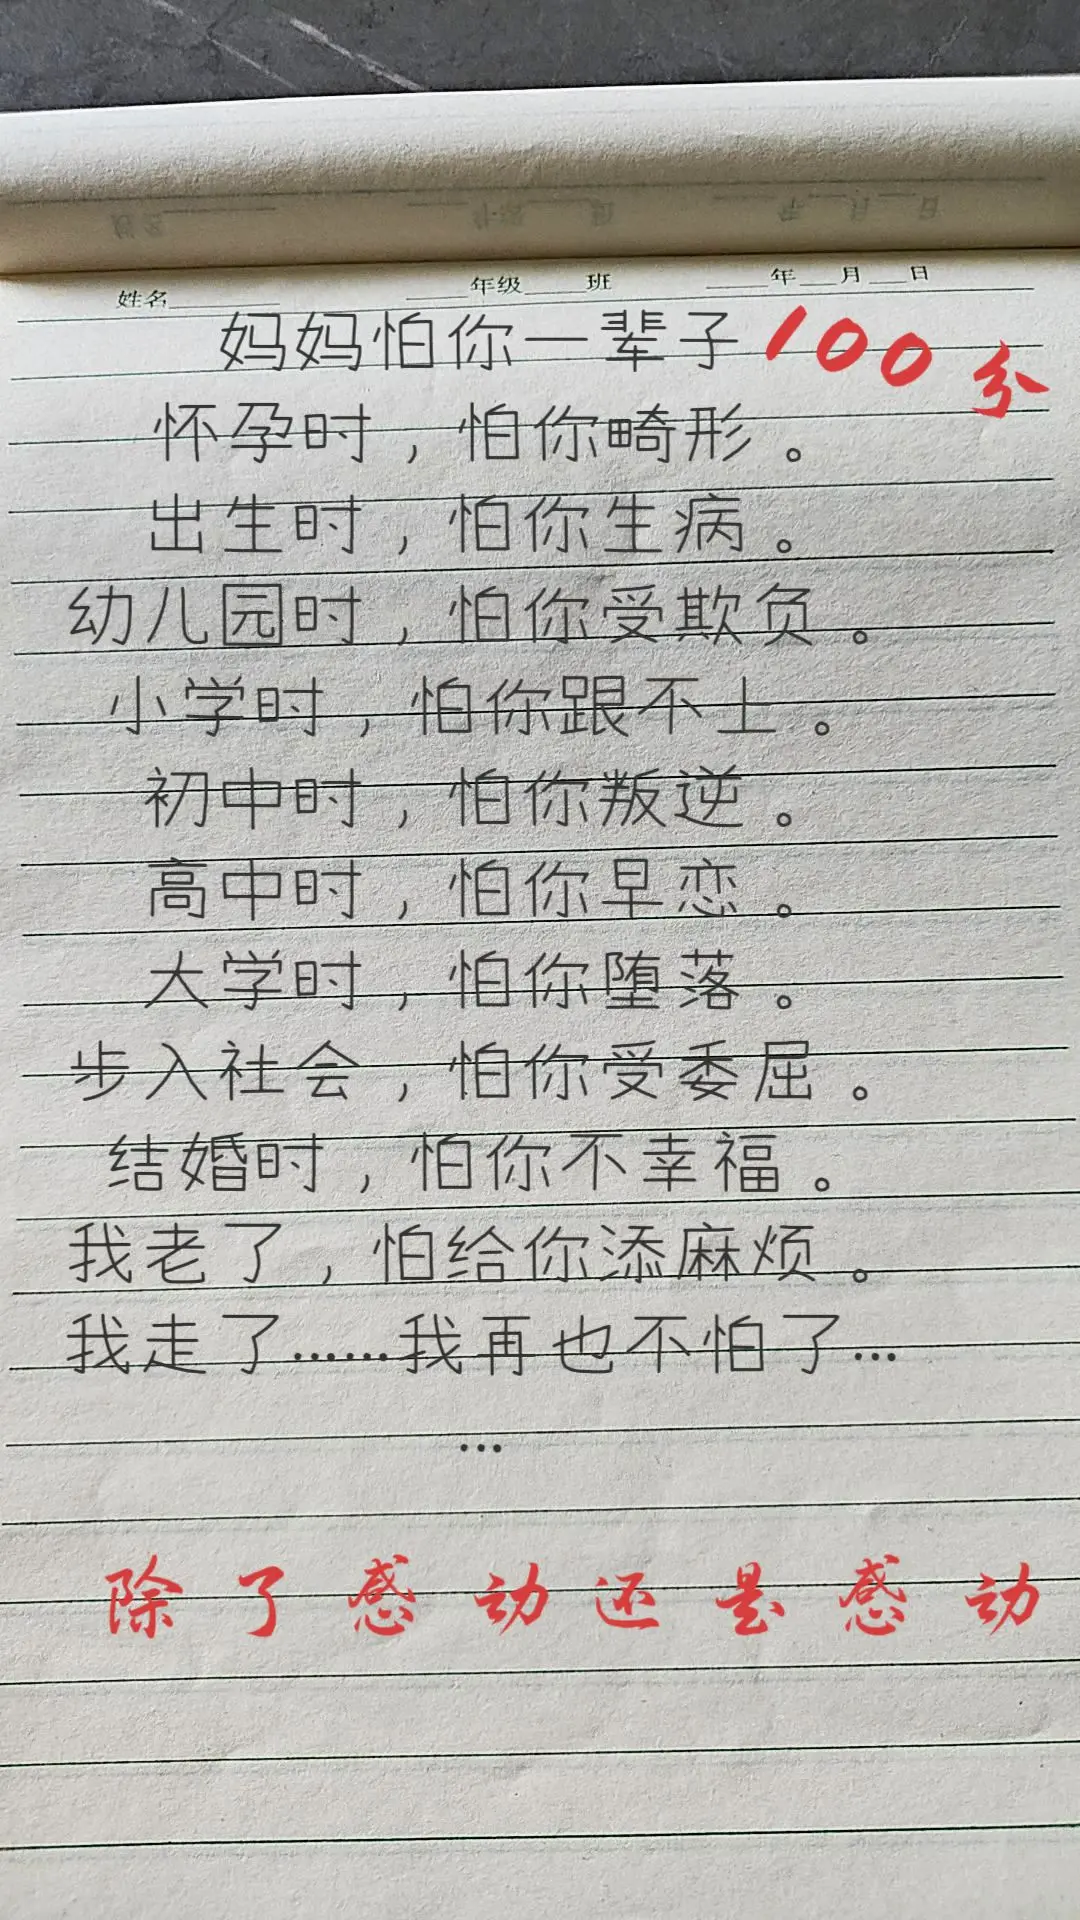 姓名______ ____年级____班 ____年__月__日
妈妈怕你一辈子 100分
怀孕时，怕你畸形。
出生时，怕你生病。
幼儿园时，怕你受欺负。
小学时，怕你跟不上。
初中时，怕你叛逆。
高中时，怕你早恋。
大学时，怕你堕落。
步入社会，怕你受委屈。
结婚时，怕你不幸福。
我老了，怕给你添麻烦。
我走了……我再也不怕了…
…
除了感动还是感动